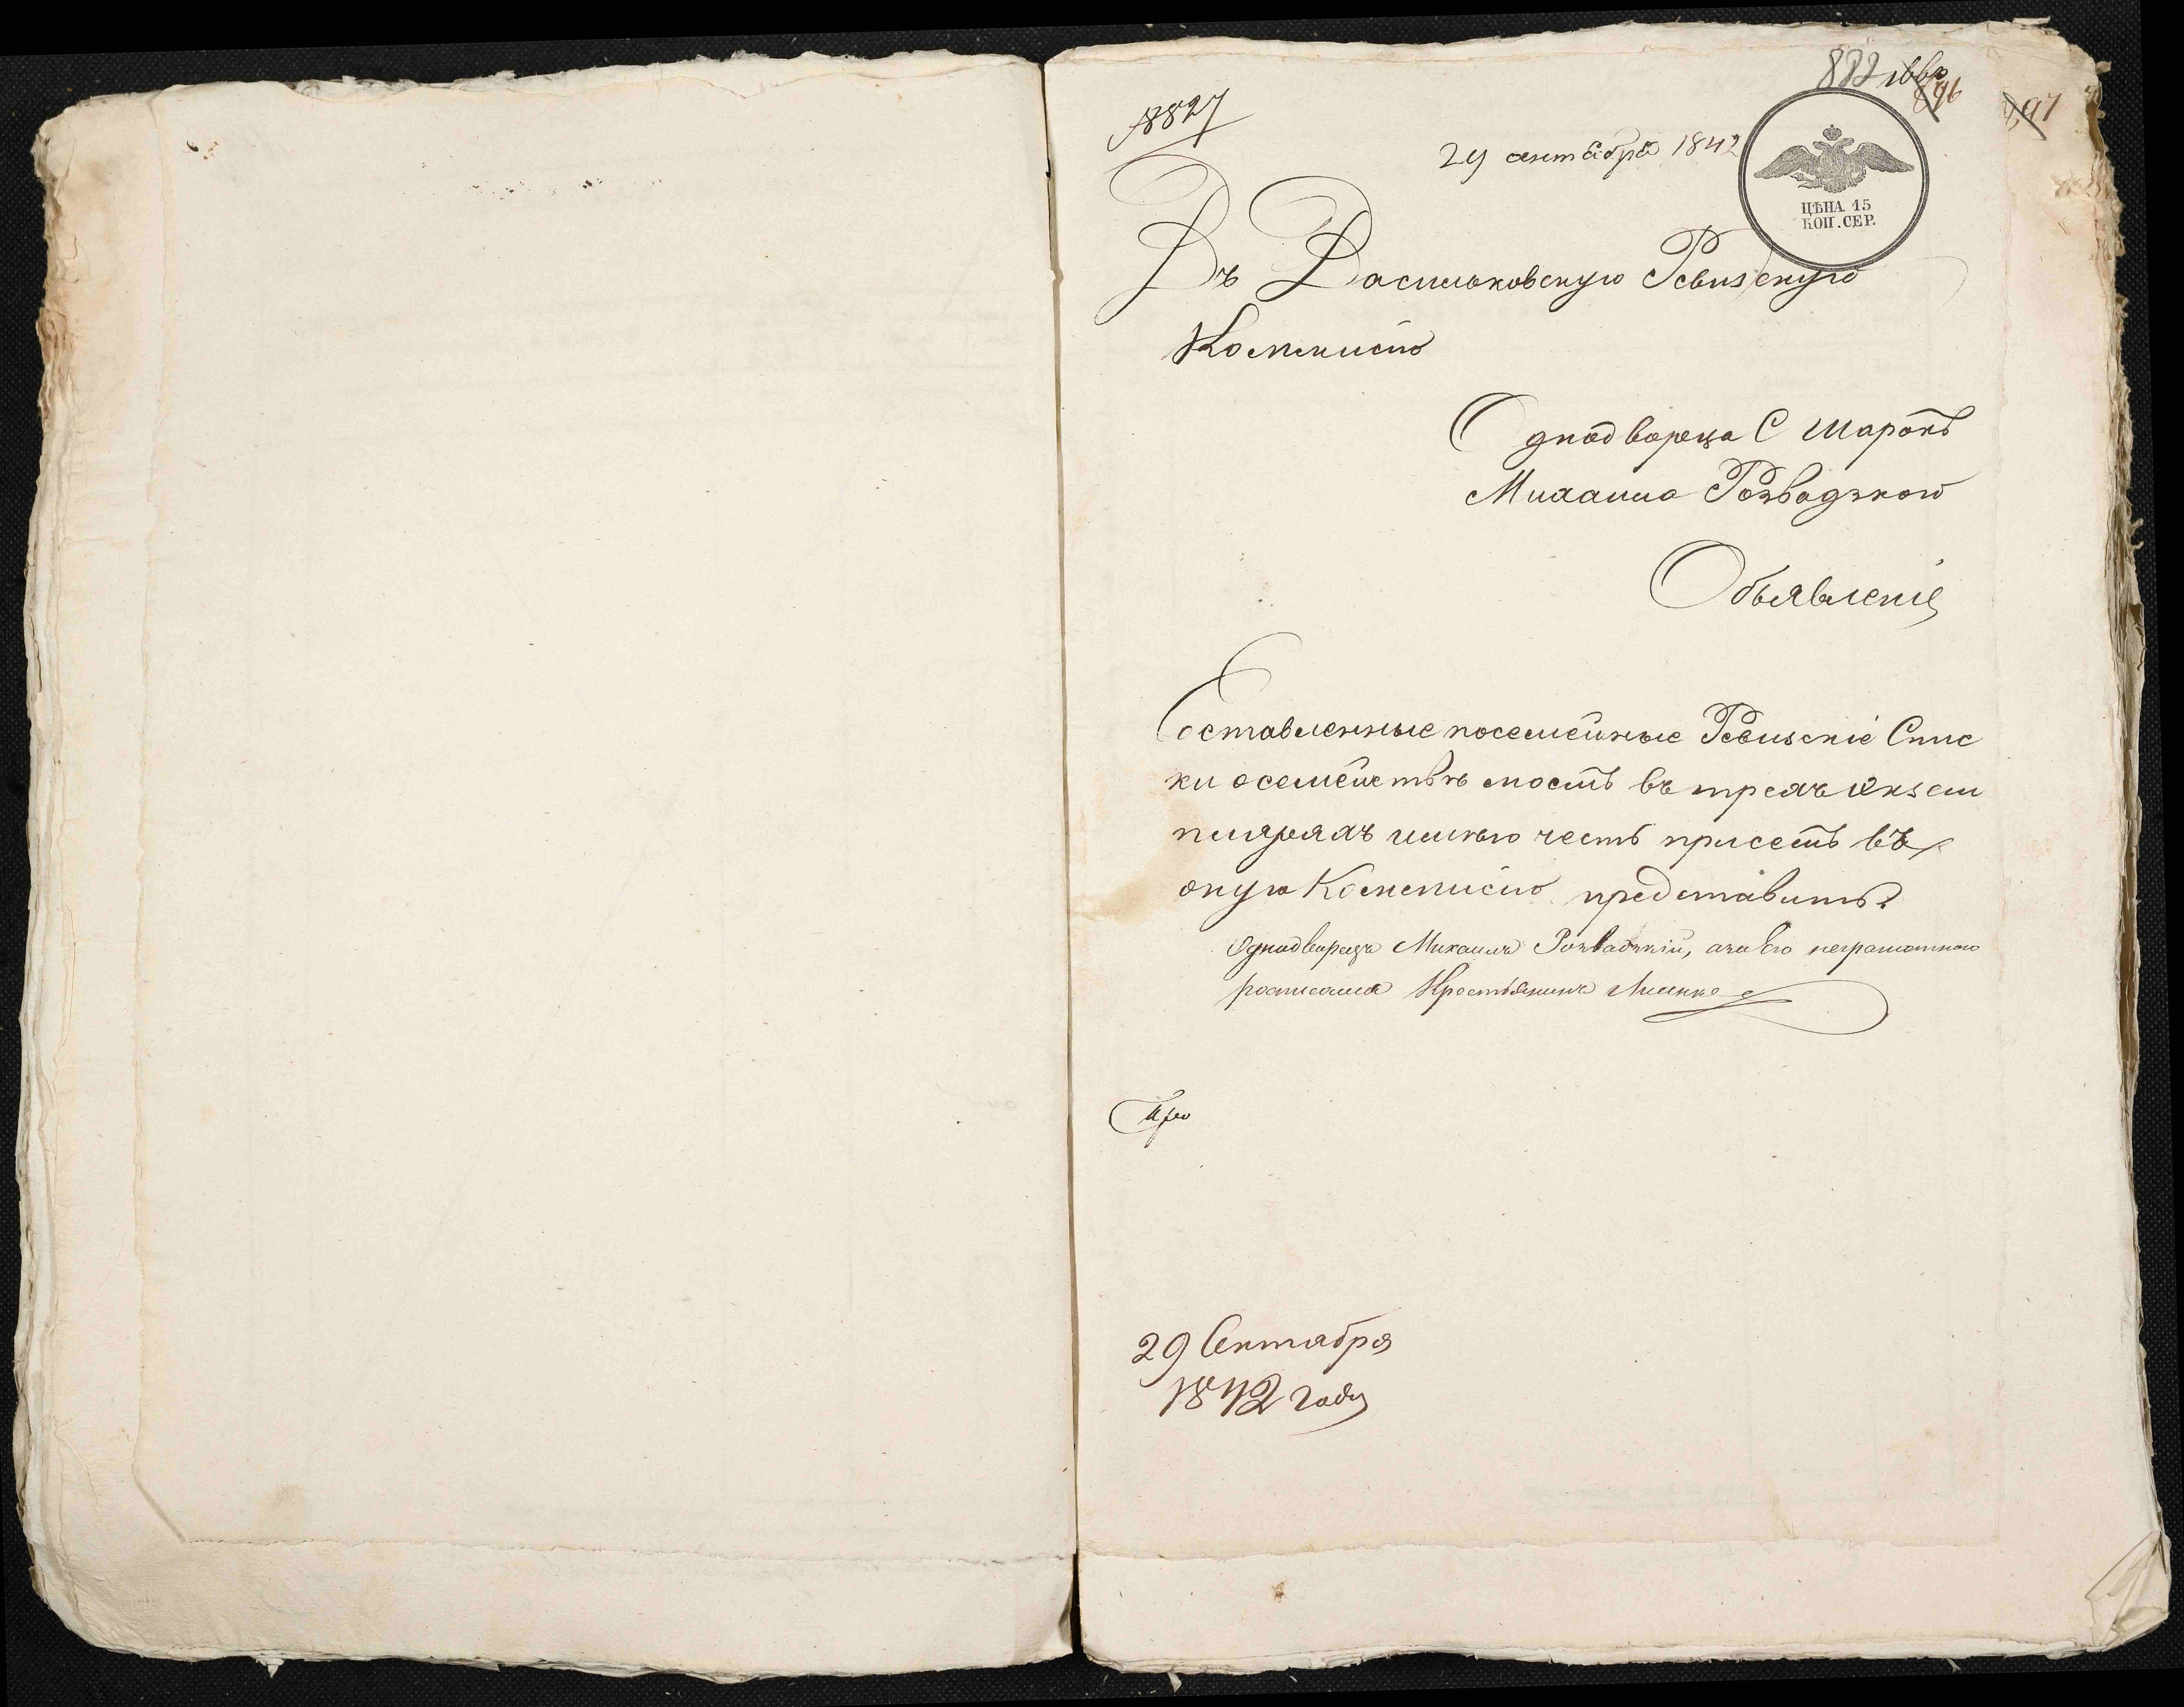 8827
882
29 сентября 1842
ЦѢНА 15
КОП. СЕР.
Въ Васильковскую Ревизскую
Коммисію
Однодворца С Шарокъ
Михаила Розвадзкого
Объявленіе
Составленные посемейные Ревизскіе Спис
ки о семействѣ моемъ въ трехъ экзем
плярахъ имѣю честь присемъ въ
оную Коммисію представить
Однодворецъ Михаилъ Розвадзкій, а за его неграмотного
росписался Крестьянинъ
29 Сентября
1842 года